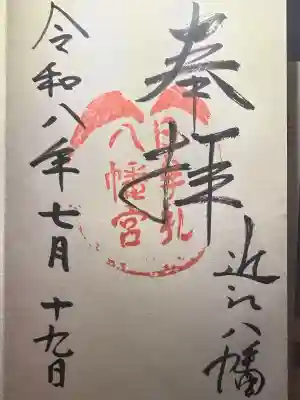 奉拝
近江八幡
日牟禮
八幡宮
令和八年七月十九日